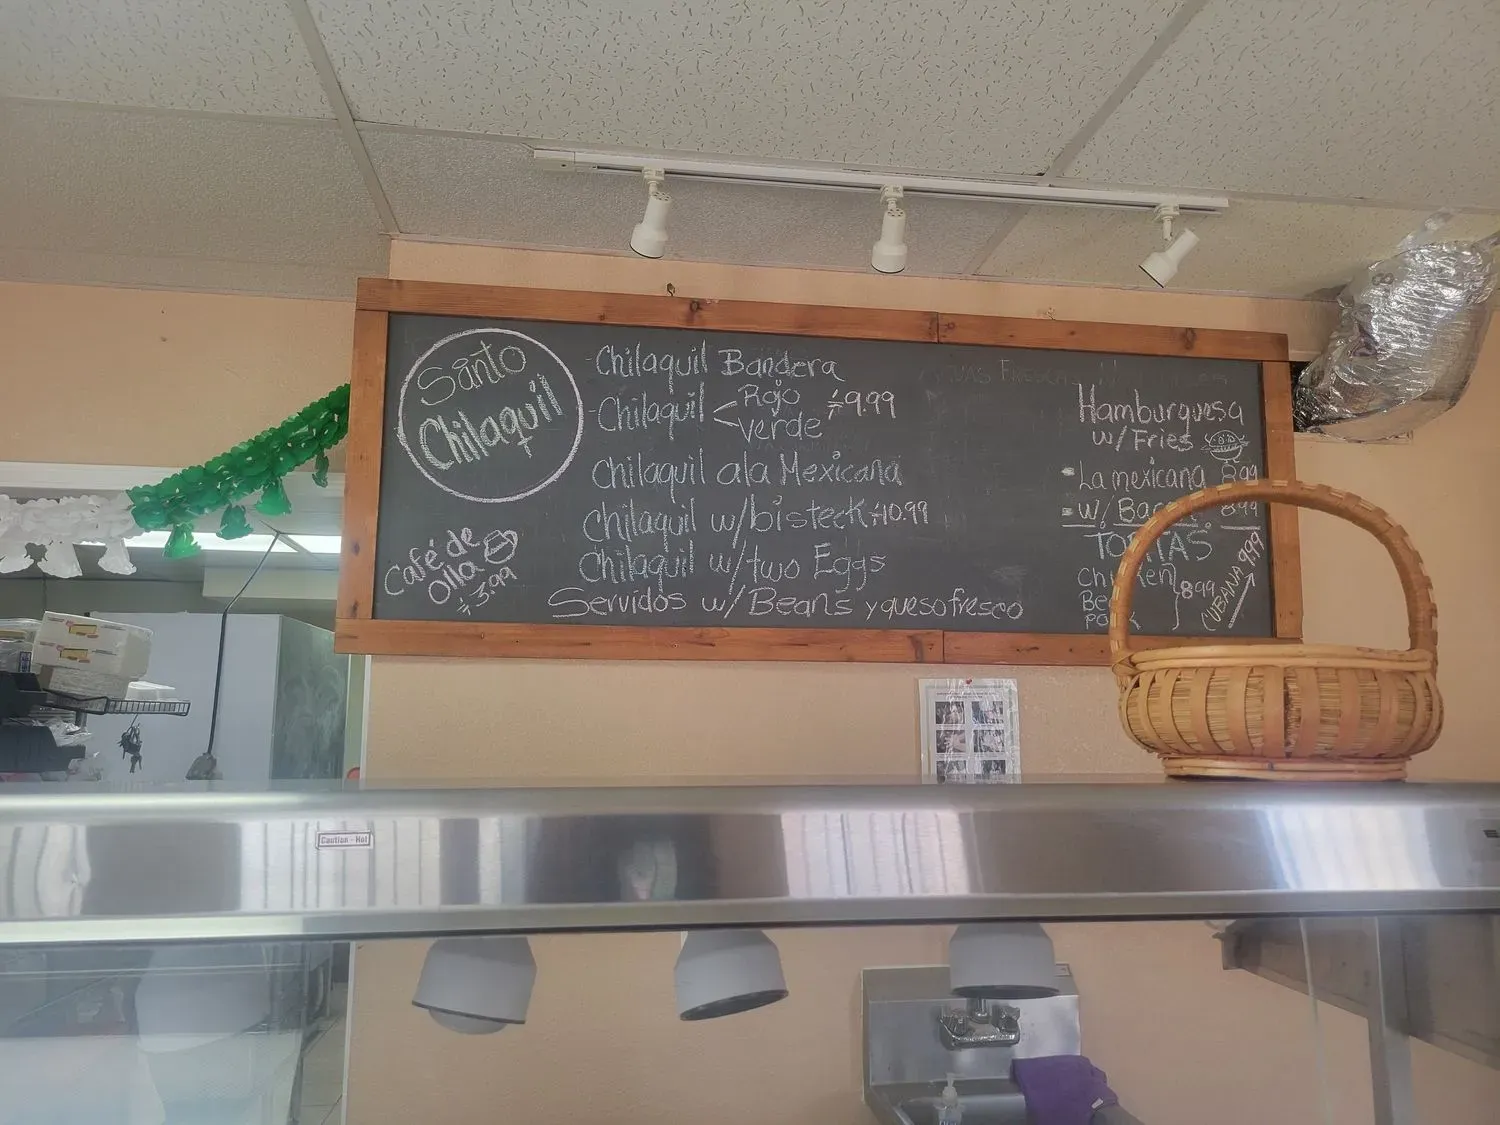 Santo
Chilaquil
Café de
Olla
3.99
-Chilaquil Bandera
-Chilaquil < Rojo
Verde
9.99
Chilaquil ala Mexicana
Chilaquil w/bisteck 10.99
Chilaquil w/two Eggs
Servidos w/Beans y queso fresco
Hamburguesa
w/Fries
- La mexicana 8.99
- w/ Bacon 8.99
TORTAS
Chicken
PORK
8.99
CUBANA 9.99
Caution - Hot